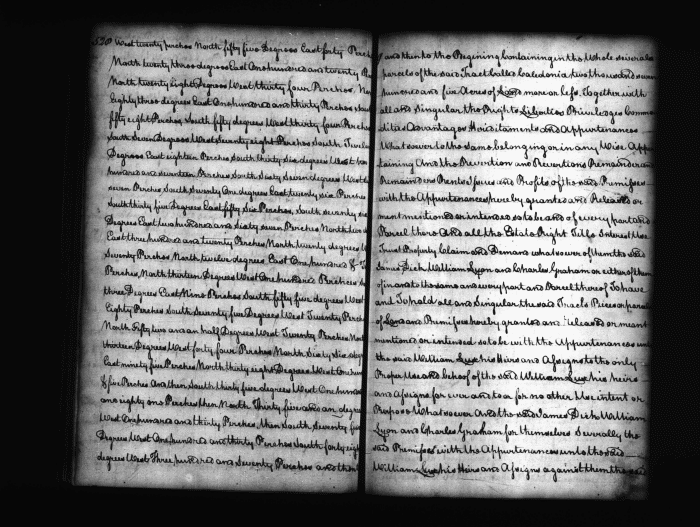 530 West twenty perches North fifty five Degrees East forty Perch
North twenty three degrees East One hundred and twenty
North twenty eight Degrees West thirty four Perches No
Eighty three degrees East One hundred and thirty Perches
fifty eight Perches South fifty degrees West thirty four Perches
South Seven Degrees West Seventy eight Perches South Twelve
Degrees East eighteen Perches South thirty six degrees West
hundred and seventeen Perches South Sixty Seven degrees West
seven Perches South Seventy One degrees East twenty six Perches
South thirty five Degrees East fifty six Perches, South seventy
Degrees East two hundred and Sixty seven Perches North
East three hundred and twenty Perches North twenty degrees
Seventy Perches North twelve degrees East One hundred &
Perches North thirteen Degrees West One hundred Perches
three Degrees East Nine Perches South fifty five degrees West
Eighty Perches South Seventy five Degrees West Twenty Perches
North Fifty two and an half Degrees West Twenty Perches No
thirteen Degrees West forty four Perches North Sixty Six deg
East ninety five Perches North thirty eight Degrees West One hun
& five Perches And then South thirty five degrees West One hund
and eighty one Perches then North Thirty five and an degre
West One hundred and thirty Perches then South seventy five
Degrees West One hundred and thirty Perches South forty eight
degrees West Three hundred and Seventy Perches and then
and then to the Begining Containing in the Whole several
parcels of the said Tract called Caledonia two thousand seven
hundred and five Acres of Land more or less. Together with
all and Singular the Rights Liberties Priviledges Commo
dities Advantages Heriditaments and Appurtenances
Whatsoever to the same belonging or in any Wise App
taining And the Reversion and Reversions Remainder and
Remainders Rents Issues and Profits of the said Premises
with the Appurtenances hereby granted and Released or
ment mentioned or intended so to be and of every part and
Parcel thereof And all the Estate Right Title Interest Use
Trust Property Claim and Demand whatsoever of them the said
James Dick William Lyon and Charles Graham or either of them
of in and to the same and every part and Parcel thereof To have
and To hold all and Singular the said Tracts Pieces or parcels
of Land and Premises hereby granted and Released or meant
mentioned or intended so to be with the Appurtenances unto
the said William Lux his Heirs and Assigns to the only
Proper Use and behoof of the said William Lux his heirs
and Assigns for ever and to a for no other Use intent or
Purpose Whatsoever And the said James Dick William
Lyon and Charles Graham for themselves Severally the
said Premises with the Appurtenances unto the said
William Lux his Heirs and Assigns against them the said